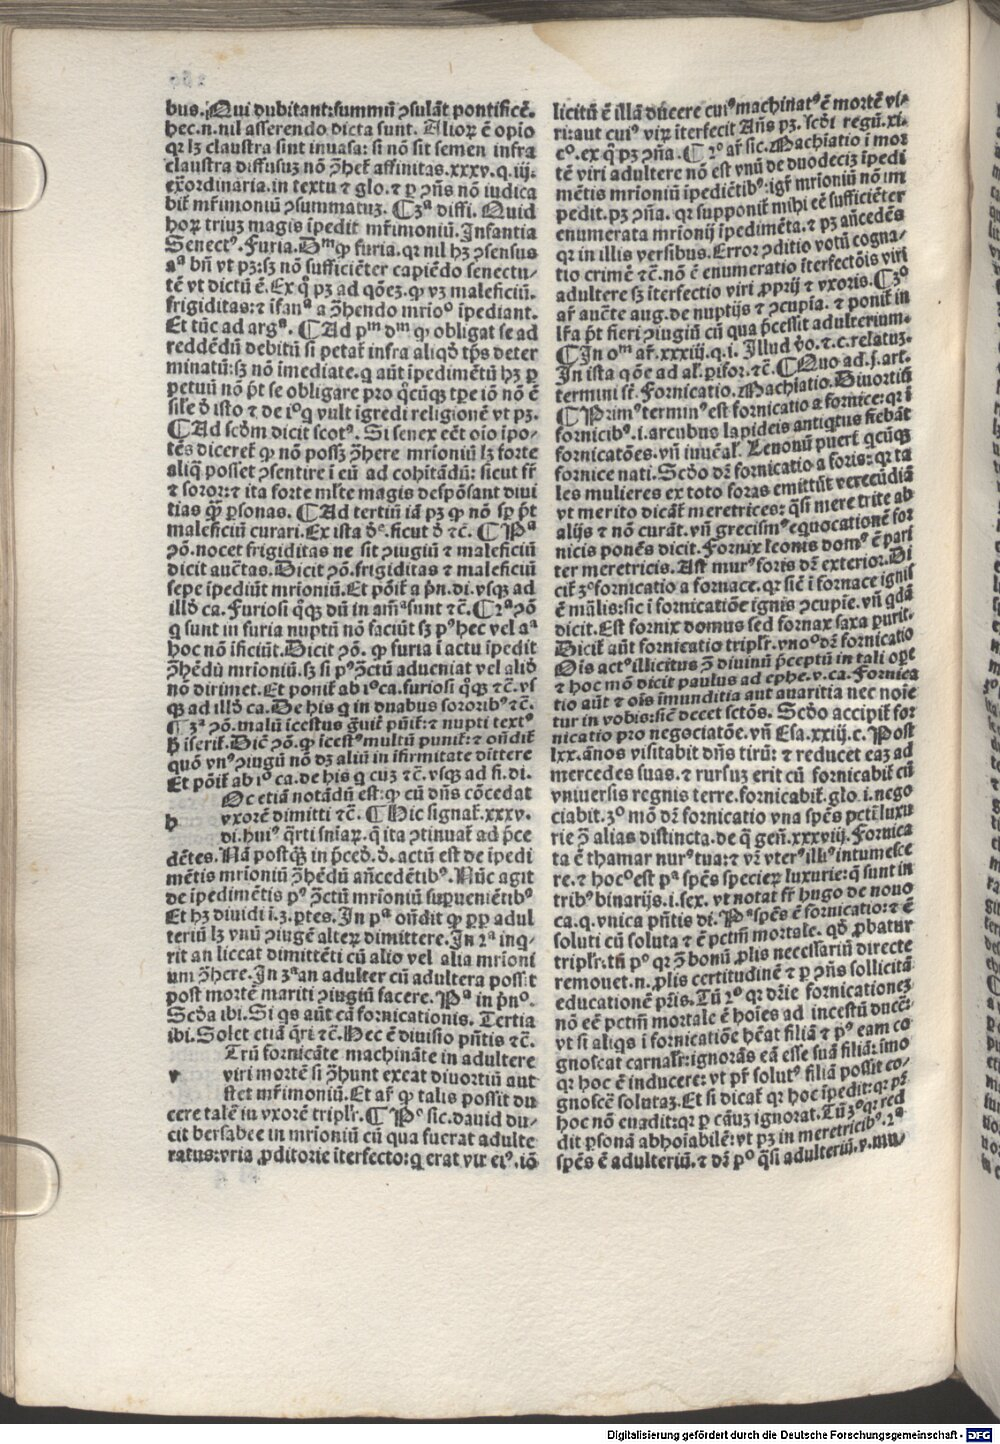 bus. Qui dubitant:summū ꝯsulāt pontificē.
hec.n.nil asserendo dicta sunt. Alioꝝ ē opio
qꝛ lꝫ claustra sint inuasa: si nō sit semen infra
claustra diffusuꝫ nō ꝯ̄heꝉ affinitas.xxxv.q.iij.
ex̄ordinaria.in textu ⁊ glo.⁊ ꝑ ꝯn̄s nō iudica
biꝉ mr̄imoniū ꝯsummatuꝫ. ¶ 3ᵃ diffi. Quid
hoꝝ triuꝫ magis īpedit mr̄imoniū. Infantia
Senectꝰ. Furia. Dᵐ ꝙ furia. qꝛ nil hꝫ ꝯsensus
aᵃ bn̄ vt pꝫ:sꝫ nō sufficiēter capiēdo senectu-
tē vt dictū ē. Ex q̄ pꝫ ad qōeꝫ.ꝙ vꝫ maleficiū.
frigiditas:⁊ īsanᵃ a ꝯ̄hendo mrioᵒ īpediant.
Et tūc ad argᵃ. ¶ Ad pᵐ dᵐ ꝙ obligat se ad
reddēdū debitū si petaꝉ infra aliqḋ tp̄s deter
minatū:sꝫ nō īmediate.q aūt īpedimētū hꝫ ꝑ
petuū nō p̄t se obligare pro qͦcūqꝫ tp̄e iō nō ē
sil̄e ḋ isto ⁊ de iᵒ q vult īgredi religionē vt pꝫ.
¶ Ad scḋm dicit scotꝰ. Si senex eēt oīo īpo-
tēs diceret ꝙ nō possꝫ ꝯ̄here mrioniū lꝫ forte
aliq̄ posset ꝯsentire ī eū ad cohitādū: sicut fr̄
⁊ soror:⁊ ita forte ml̄te magis despōsant diui
tias qͣꝫ ꝑsonas. ¶ Ad tertiū iā pꝫ ꝙ nō sꝑ p̄t
maleficiū curari. Ex ista ḋᵉ.sicut ḋ ⁊c̄. ¶ Pᵃ
ꝯō.nocet frigiditas ne sit ꝯiugiū ⁊ maleficiū
dicit auētas. Dicit ꝯō.frigiditas ⁊ maleficiū
sepe īpediūt mrioniū. Et pōiꝉ a p̄n.di.vsqꝫ ad
illḋ ca. Furiosi qͦqꝫ dū in am̄ᵃ sunt ⁊c̄. ¶ 2ᵃ ꝯō
q sunt in furia nuptū nō faciūt sꝫ pꝰ hec vel aᵃ
hoc nō īficiūt. Dicit ꝯō. ꝙ furia ī actu īpedit
ꝯ̄hēdū mrioniū.sꝫ si pꝰ ꝯ̄ctū adueniat vel aliḋ
nō dirimet. Et poniꝉ ab iᵒ ca.furiosi qͦqꝫ ⁊c̄. vs
qꝫ ad illḋ ca. De his q in duabus sororibꝰ ⁊c̄.
¶ 3ᵃ ꝯō.malū īcestus gͣuiꝉ pūiꝉ:⁊ nupti textꝰ
ḣ īseriꝉ. Dic̄ ꝯō.ꝙ īcestꝰ multū puniꝉ:⁊ on̄diꝉ
quō vnꝰ ꝯiugū nō dꝫ aliū in īfirmitate dittere
Et pōiꝉ ab iᵒ ca.de his q cuꝫ ⁊c̄.vsqꝫ ad fi.di.
h Oc etiā notādū est:ꝙ cū dn̄s cōcedat
vxorē dimitti ⁊c̄. ¶ Hic signaꝉ.xxxv.
di.huiꝰ qͣrti sniaꝝ.q̄ ita ꝯtinuaꝉ ad p̄ce
dētes. Nā postqͣꝫ in p̄ceḋ.ḋ.actū est de īpedi
mētis mrioniū ꝯ̄hēdū an̄cedētibꝰ. Nūc agit
de īpedimētis pꝰ ꝯ̄ctū mrioniū supueniētibꝰ
Et hꝫ diuidi i.3.ꝑtes. In pᵃ on̄dit ꝙ ꝓꝑ adul
teriū lꝫ vnū ꝯiugē alteꝝ dimittere. In 2ᵃ inq-
rit an liceat dimittēti cū alio vel alia mrioni
um ꝯ̄here. In 3ᵃ an adulter cū adultera possit
post mortē mariti ꝯiugiū facere. Pᵃ in p̄nᵒ.
Scḋa ibi. Si qs aūt cā fornicationis. Tertia
ibi. Solet etiā qͣri ⁊c̄. Hec ē diuisio pn̄tis ⁊c̄.
v Trū fornicāte machināte in adultere
viri mortē si ꝯ̄hunt exeat diuortiū aut
stet mr̄imoniū. Et aꝉ ꝙ talis possit du
cere talē in vxorē triplr̄. ¶ Pᵒ sic.dauid du-
cit bersabee in mrioniū cū qua fuerat adulte
ratus:vria ꝓditorie īterfecto:q erat vir eiꝰ.iō
licitū ē illā ducere cuiꝰ machinatꝰ ē mortē vi-
ri:aut cuiꝰ viꝝ īterfecit An̄s pꝫ. scḋi regū.xi.
cᵒ. ex q̄ pꝫ ꝯn̄a. ¶ 2ᵒ aꝉ sic. Machīatio ī mor
tē viri adultere nō est vnū de duodeciꝫ īpedi
mētis mrioniū īpediētibꝰ:igꝉ mrioniū nō im
pedit.pꝫ ꝯn̄a. qꝛ supponiꝉ mihi eē sufficiēter
enumerata mrionij īpedimēta.⁊ pꝫ an̄cedēs
qꝛ in illis versibus. Error ꝯditio votū cogna-
tio crimē ⁊c̄.nō ē enumeratio īterfectōis viri
adultere sꝫ īterfectio viri ꝓprij ⁊ vxoris. ¶ 3ᵒ
aꝉ auc̄te aug.de nuptijs ⁊ ꝯcupīa. ⁊ poniꝉ in
lr̄a p̄t fieri ꝯiugiū cū qua p̄cessit adulterium.
¶ In oᵐ aꝉ.xxxiii.q.i. Illud ṽo.⁊.c.relatuꝫ.
In ista qōe ad aꝉ.ꝑifor.⁊c̄. ¶ Quo ad.j.art.
termini sꝉ. Fornicatio. Machīatio. Diuortiū
¶ Primꝰ terminꝰ est fornicatio a fornice:qꝛ ī
fornicibꝰ.i.arcubus lapideis antiqtus fiebāt
fornicatōes.vn̄ iuuēaꝉ. Lenonū pueri qͦcūqꝫ
fornice nati. Scḋo dꝛ̄ fornicatio a foris:qꝛ ta
les mulieres ex toto foras emittūt verecūdiā
vt merito dicāꝉ meretrices:qͣsi mere trite ab
alijs ⁊ nō curāt.vn̄ grecismꝰ equocationē for
nicis ponēs dicit. Fornix leonis domꝰ ē pari
ter meretricis. Ast murꝰ foris dꝛ̄ exterior. Di
ciꝉ 3ᵒ fornicatio a fornace. qꝛ sic̄ ī fornace ignis
ē mālis:sic ī fornicatiōe ignis ꝯcupīe. vn̄ qͣdā
dicit. Est fornix domus sed fornax saxa ꝑurit.
Diciꝉ aūt fornicatio triplr̄.vnoᵒ dꝛ̄ fornicatio
Ois actꝰ illicitus ꝯ̄ diuinū p̄ceptū in tali oꝑe
⁊ hoc mō dicit paulus ad ephe.v.ca. Fornica
tio aūt ⁊ oīs īmunditia aut auaritia nec noīe
tur in vobis:sic̄ decet sctōs. Scḋo accipiꝉ for
nicatio pro negociatōe.vn̄ Esa.xxiij.c. Post
lxx.ānos visitabit dn̄s tirū:⁊ reducet eaꝫ ad
mercedes suas.⁊ rursuꝫ erit cū fornicabiꝉ cū
vniuersis regnis terre.fornicabiꝉ.glo.i.nego
ciabit.3ᵒ mō dꝛ̄ fornicatio vna sp̄es pcti luxu
rie ꝯ̄ alias distincta.de q̄ gen̄.xxxviij. Fornica
ta ē thamar nurꝰ tua:⁊ vꝛ̄ vterꝰ illiꝰ intumesce
re.⁊ hocᵒ est pᵃ sp̄es specieꝝ luxurie:q̄ sunt in
tribꝰ binarijs.i.sex. vt notat fr̄ hugo de nouo
ca.q.vnica pn̄tis di. Pᵃ sp̄es ē fornicatio:⁊ ē
soluti cū soluta ⁊ ē pctm̄ mortale. qḋ ꝓbatur
triplr̄:tn̄ pᵒ qꝛ ꝯ̄ bonū ꝓlis necessariū directe
remouet.n.ꝓlis certitudinē ⁊ ꝑ ꝯn̄s sollicitā
educationē pr̄is. Tū 2ᵒ qꝛ dr̄ie fornicationeꝫ
nō eē pctm̄ mortale ē hoīes ad incestū ducē:
vt si aliqs ī fornicatiōe hēat filiā ⁊ pꝰ eam co
gnoscat carnalr̄:ignorās eā esse suā filiā:īmo
qꝛ hoc ē inducere:vt pr̄ solutꝰ filiā possit co-
gnoscē solutaꝫ. Et si dicaꝉ qꝛ hoc īpedit:qꝛ pꝛ̄
hoc nō euadit:qꝛ ꝑ cāuꝫ ignorat. Tū 3ᵒ qꝛ red
dit ꝑsonā abhoīabilē:vt pꝫ in meretricibꝰ. 2ᵃ
sp̄es ē adulteriū.⁊ dꝛ̄ pᵒ qͣsi adulteriū.v.mu-
Digitalisierung gefördert durch die Deutsche Forschungsgemeinschaft - DFG